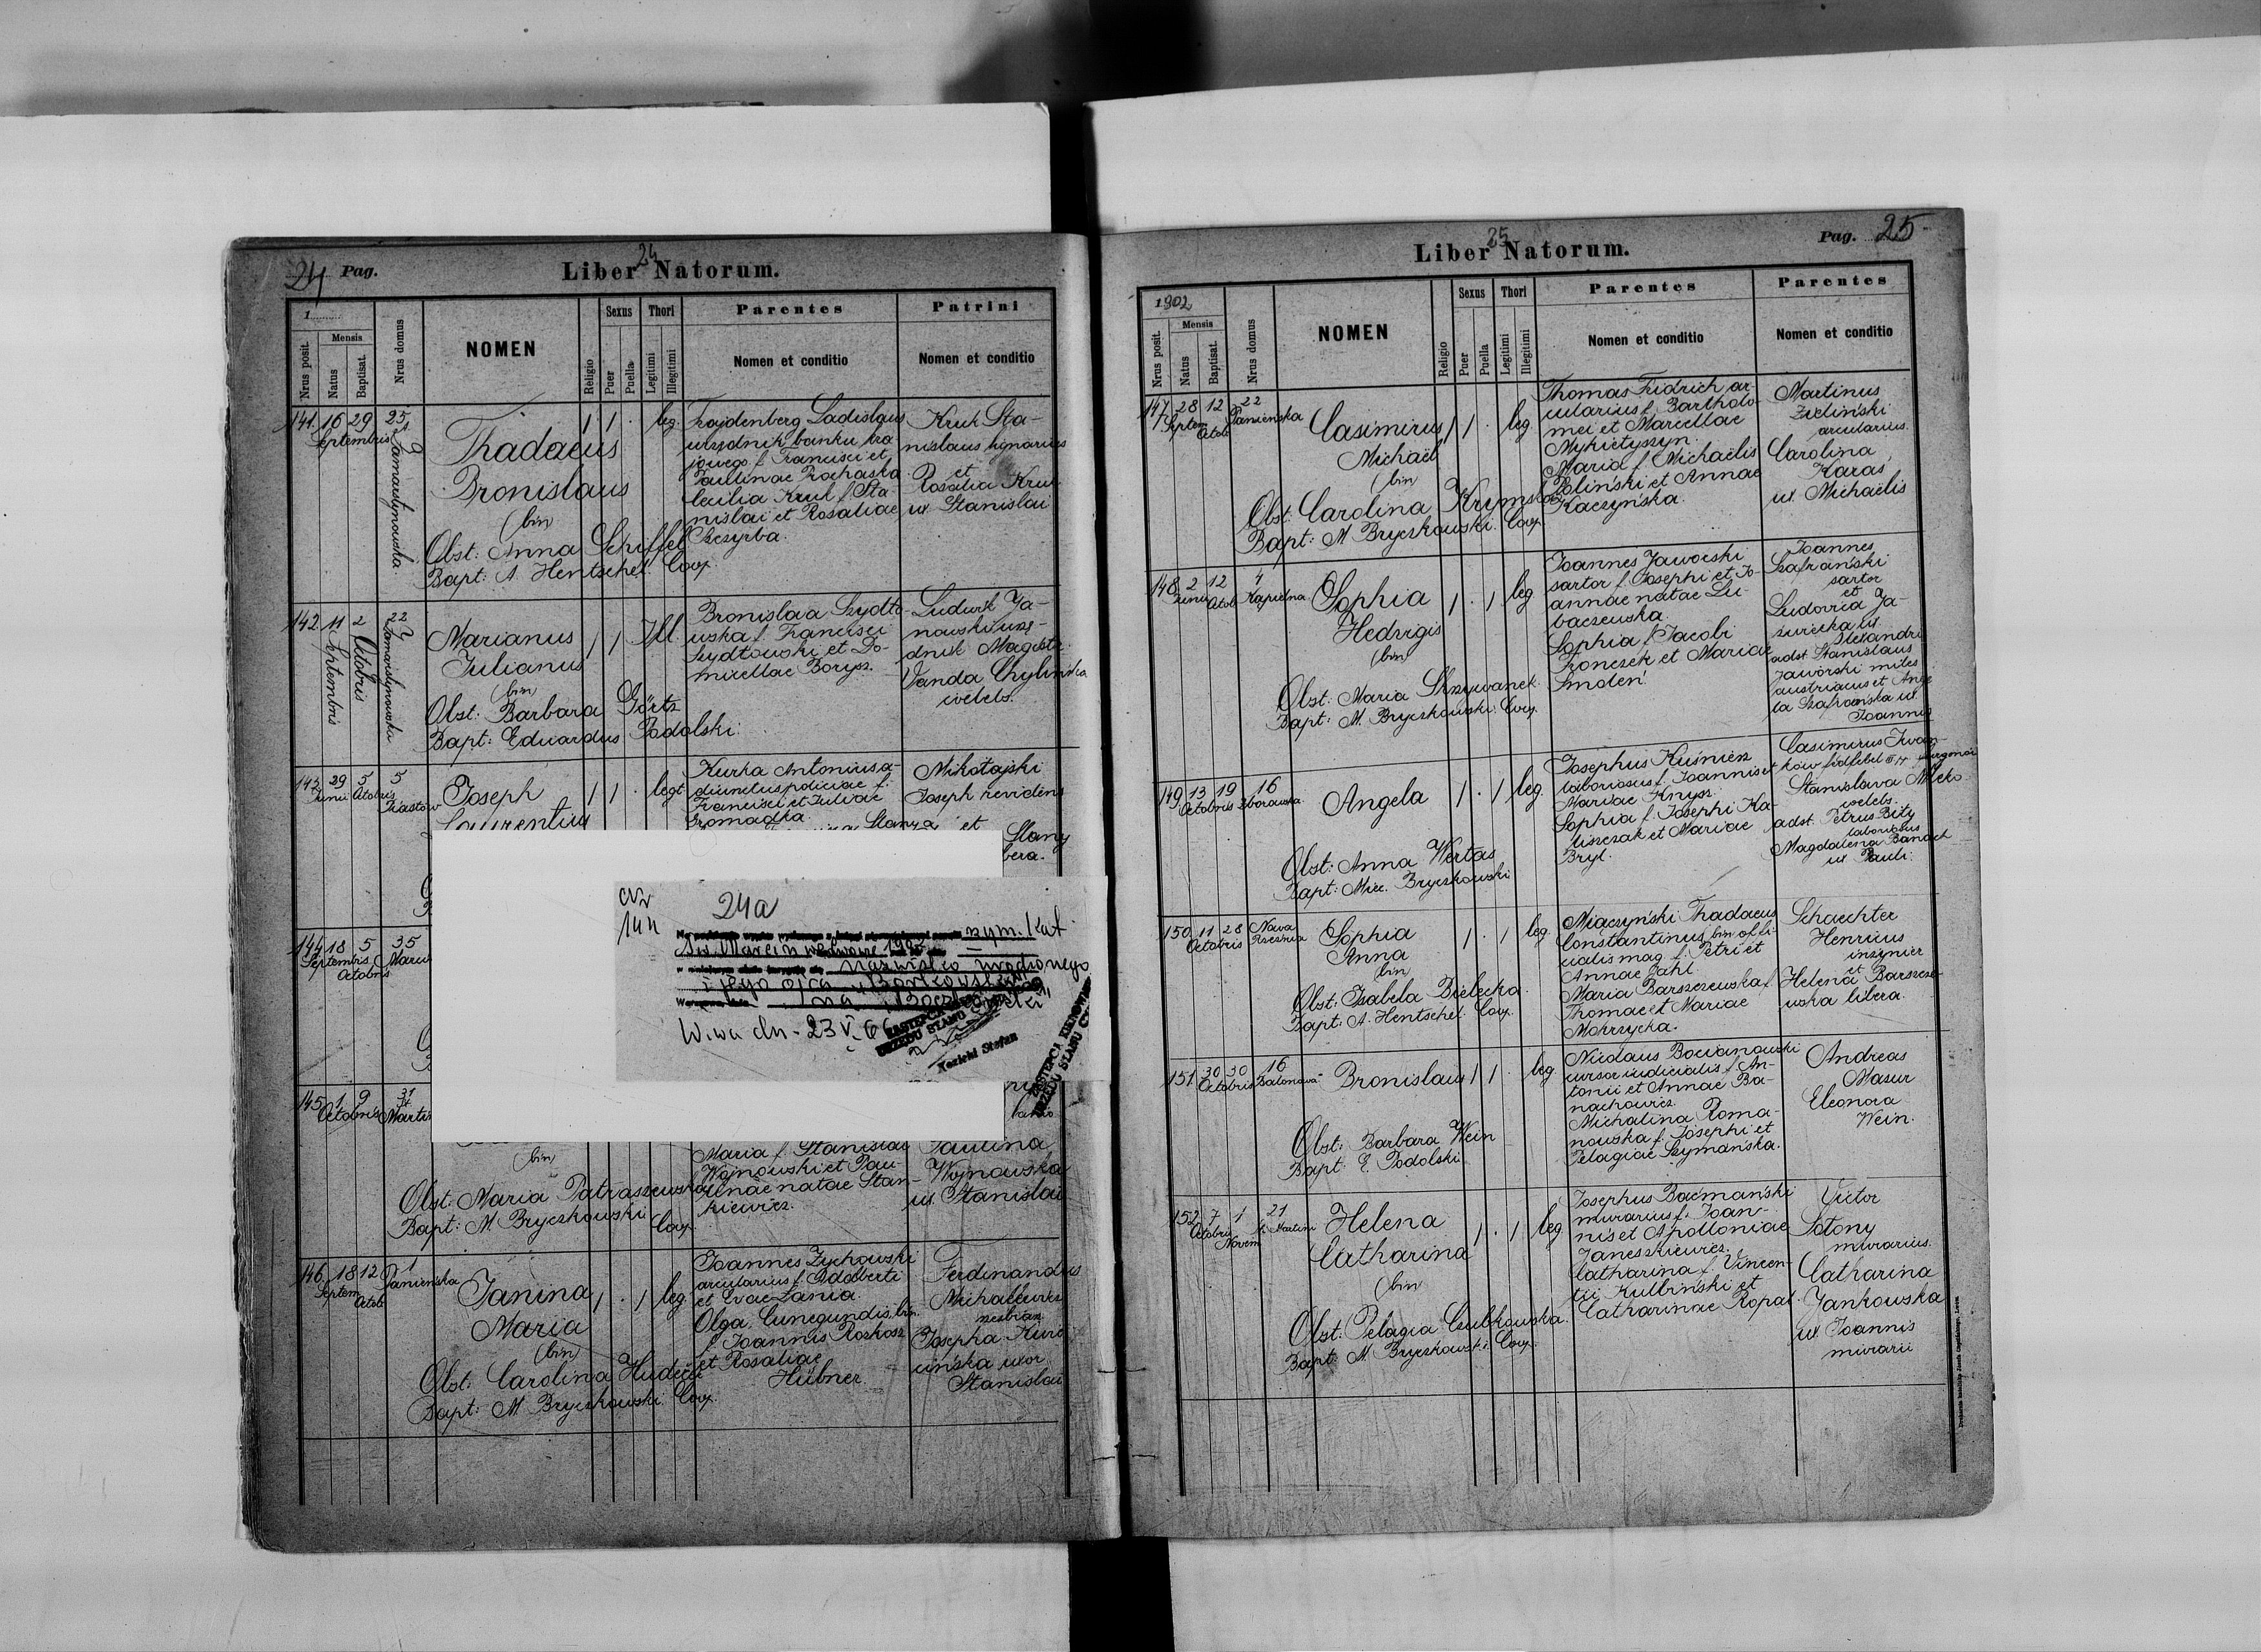 24 Pag.
24
Liber Natorum.
1
Nrus posit.
Mensis
Natus
Baptisat.
Nrus domus
NOMEN
Religio
Sexus
Puer
Puella
Thori
Legitimi
Illegitimi
Parentes
Nomen et conditio
Patrini
Nomen et conditio
141. 16 29 25
Septembris
Zamarstynowska
Thadaeus
Bronislaus
(bin)
Obst: Anna Schiffel
Bapt: A. Hentschel. Coop.
1 1 . leg.
Frajdenberg Ladislaus
urzędnik banku kra
jowego f. Francisci et
Paulinae Prohaska
Cecilia Kruk f. Sta
nislai et Rosaliae
Szczyrba.
Kruk Sta-
nislaus
et
Rosalia Kruk
ux. Stanislai
142 11 2 22
Septembris
Octobris
Zamarstynowska
Marianus
Julianus
(bin)
Obst: Barbara Görtz
Bapt: Eduardus Podolski.
1 1 Ill.
Bronislava Szydło-
wska f. Francisci
Szydłowski et Do-
micellae Borysz.
Ludwik Ja-
nowski urzę-
dnik Magistr.
Vanda Chylińska
coelebs.
143 29 5 5
Junii Octobris
Piastów
Joseph
Laurentius
1 1 . legt
Kurka Antonius a-
diunctus policiae f.
Francisci et Juliae
Gromadka.
Mikołajski
Joseph revidens
et
Slany
libera.
144 18 5 35
Septembris
Octobris
24a
Nr
144
rzym. kat
Św. Marcin we Lwowie 1902
nazwisko urodzonego
i jego ojca "Borkowski"
na
W-wa dn. 23 V. 66
ZASTĘPCA KIEROWNIKA
URZĘDU STANU CYWILNEGO
Nozicki Stefan
145 1 9 31
Octobris
(bin)
Obst: Maria Patraszewska
Bapt: M Bryczkowski Coop.
Maria f. Stanislai
Wojnowski et Pau-
linae natae Stan-
kiewicz.
Paulina
Wojnowska
ux. Stanislai
146. 18 12 1
Septem.
Octob
Panienska
Janina
Maria
(bin)
Obst: Carolina Hudecz
Bapt: M Bryczkowski. Coop.
1 . 1 leg
Joannes Zychowski
arcularius f. Adalberti
et Evae Lania.
Olga, Cunegundis, bin.
f. Joannis Roskosz
et Rosaliae
Hübner.
Ferdinandus
Michalewicz
Josepha Kuro
cińska uxor
Stanislai
25
Liber Natorum.
Pag. 25
1902
Nrus posit.
Mensis
Natus
Baptisat.
Nrus domus
NOMEN
Religio
Sexus
Puer
Puella
Thori
Legitimi
Illegitimi
Parentes
Nomen et conditio
Parentes
Nomen et conditio
147 28 12 22
Septem
Octob
Panieńska
Casimirus
Michaël
(bin)
Obst: Carolina Krymska
Bapt: M Bryczkowski. Coop.
1 1 . leg
Thomas Fridrich ar-
cularius f. Bartholo-
mei et Marcellae
Mykietyszyn.
Maria f. Michaëlis
Zieliński et Annae
Kaczyńska.
Martinus
Zieliński
arcularius.
Carolina
Karas
ux. Michaëlis
148 2 12 4
Junii Octob Kąpielna
Sophia
Hedvigis
(bin)
Obst: Maria Skrzywanek.
Bapt: M. Bryczkowski. Coop.
1 . 1 leg
Joannes Jaworski
sartor f. Josephi et Jo-
annae natae Lu-
baczewska.
Sophia f. Jacobi
Fronczek et Mariae
Smoleń.
Joannes
Szafrański
sartor
et
Ludovica Ja-
ux.
Alexandri
adst Stanislaus
Jaworski miles
austriacus et Ange-
la Szafrańska ux.
Joannis
149 13 19 16
Octobris Zborowska
Angela
Obst: Anna Wertas
Bapt: Mic. Bryczkowski
1 . 1 leg.
Josephus Kuśnierz
laboriosus f. Joannis et
Mariae Knysz.
Sophia f. Josephi Ka-
liszczak et Mariae
Bryl.
Casimirus Iwan-
ków
Stanislava Mleko
coelebs.
adst. Petrus Biły
laboriosus
Magdalena Banach
ux. Pauli.
150 11 28 Nova
Octobris Rzeźnia
Sophia
Anna
(bin)
Obst: Isabela Bielecka.
Bapt: A. Hentschel. Coop.
1 . 1 leg.
Miączyński Thadaeus
Constantinus, bin offi-
cialis mag f. Petri et
Annae Jahl
Maria Barszczewska f.
Thomae et Mariae
Mokrzycka.
Schaechter
Henricus
inżynier
et
Helena Barszcze-
wska libera.
151 30 30 16
Octobris Balonova
Bronislaus
Obst: Barbara Wein
Bapt: E. Podolski
1 1 . leg
Nicolaus Bocianowski
cursor iudicialis f. An-
tonii et Annae Ba-
nachowicz.
Michalina Roma-
nowska f. Josephi et
Pelagiae Szymańska.
Andreas
Masur
Eleonora
Wein.
152 7 1 21
Octobris
Novem. S. Martini
Helena
Catharina
(bin)
Obst: Pelagia Czubkowska.
Bapt: M. Bryczkowski. Coop.
1 . 1 leg
Josephus Baćmański
murarius f. Joan-
nis et Apolloniae
Janeszkiewicz.
Catharina f. Vincen-
tii Kulbiński et
Catharinae Ropat.
Victor
Sotony
murarius.
Catharina
Jankowska
ux Joannis
murarii